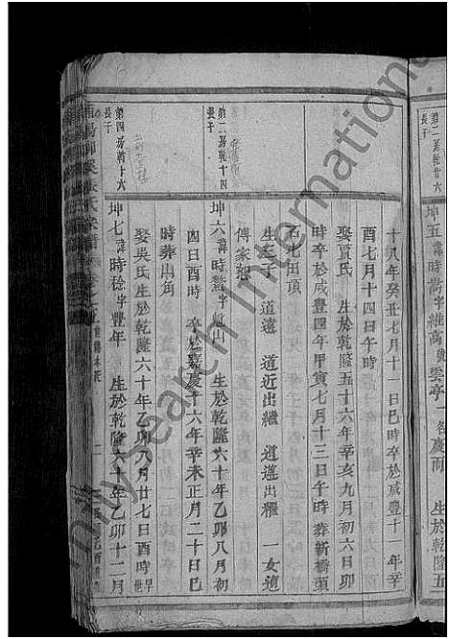 第二房幹廿六
長子
坤五諱時嵩字維高號雲亭 一名慶南 生於乾隆五
十八年癸丑七月十一日巳時卒於咸豐十一年辛
酉七月十四日午時
娶賈氏 生於乾隆五十六年辛亥九月初六日卯
時卒於咸豐四年甲寅七月十三日午時 葬新橋頭
石七田頂
生三子 道遠 道近出繼 道邁出繼 一女適
傅家
第二房幹十四
長子
坤六諱時 字 山 生於乾隆六十年乙卯八月初
四日酉時 卒於嘉慶十六年辛未正月二十日巳
時葬山角
娶吳氏生於乾隆六十年乙卯八月廿七日酉時早
第四房幹十六
長子
坤七諱時稔字豐年 生於乾隆六十年乙卯十二月
張氏宗譜
familysearch International